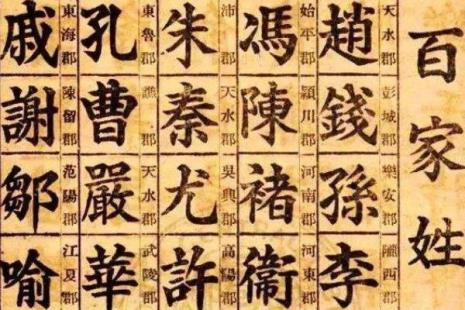 百家姓
天水郡 彭城郡 樂安郡 隴西郡
趙錢孫李
始平郡 潁川郡 河南郡 河東郡
馮陳褚衞
沛郡 天水郡 吳興郡 高陽郡
朱秦尤許
東魯郡 譙郡 天水郡 武陵郡
孔曹嚴華
東海郡 陳留郡 范陽郡 江夏郡
戚謝鄒喻